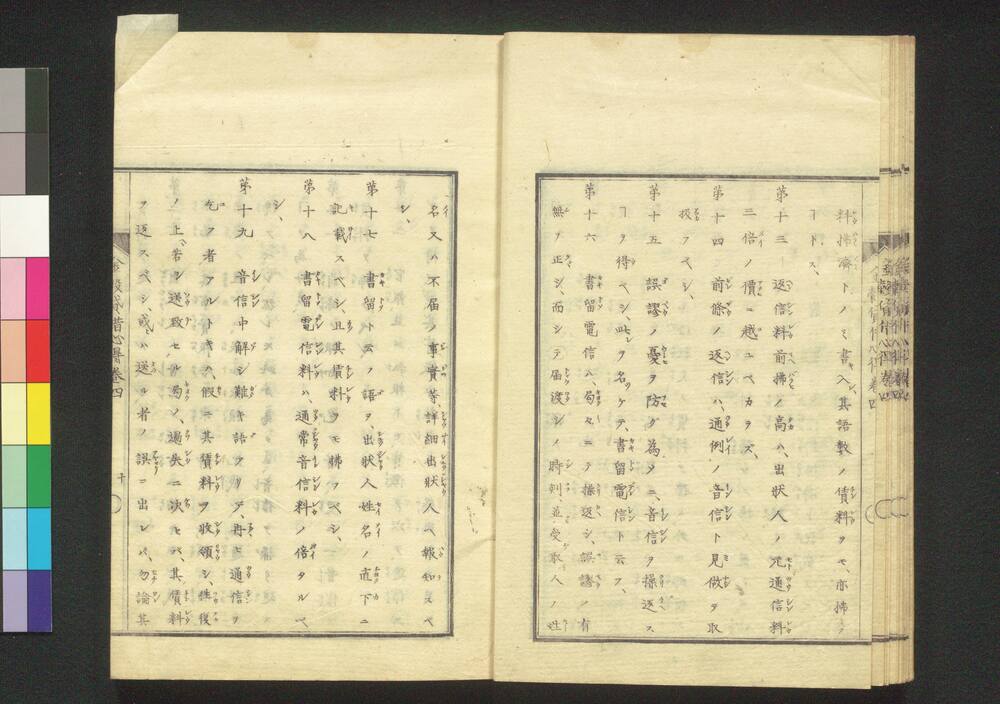 料拂濟トノミ書入、其語數ノ償料ヲモ、亦拂フ
ヿトス、
第十三 返信料前拂ノ高ハ、出狀人ノ元通信料
三倍ノ價ニ越ユベカラズ、
第十四 前條ノ返信ハ、通例ノ音信ト見做ヲ取
扱フベシ、
第十五 誤謬ノ憂ヲ防グ為メニ、音信ヲ操返ス
ヿヲ得ベシ、此レヲ名ケテ、書留電信ト云フ、
第十六 書留電信ハ、局々ニテ操返シ、誤謬ノ有
無ヲ正シ、而シテ届渡シノ時刻並受取人ノ姓
名又ハ不届ノ事實等、詳細出狀人ヘ報知スベ
シ、
第十七 書留ト云ノ語ヲ、出狀人姓名ノ直下ニ
記載スベシ、且其償料ヲモ拂フベシ、
第十八 書留電信料ハ、通常音信料ノ倍タルベ
シ、
第十九 音信中解シ難キ語アリテ、再ビ通信ヲ
乞フ者アルトキハ、假ニ其償料ヲ收領シ、往復
ノ上、若シ送致セル局ノ、過失ニ決セバ、其償料
ヲ返スベシ、或ハ送ル者ノ誤ニ出レバ、勿論其
卷四
十